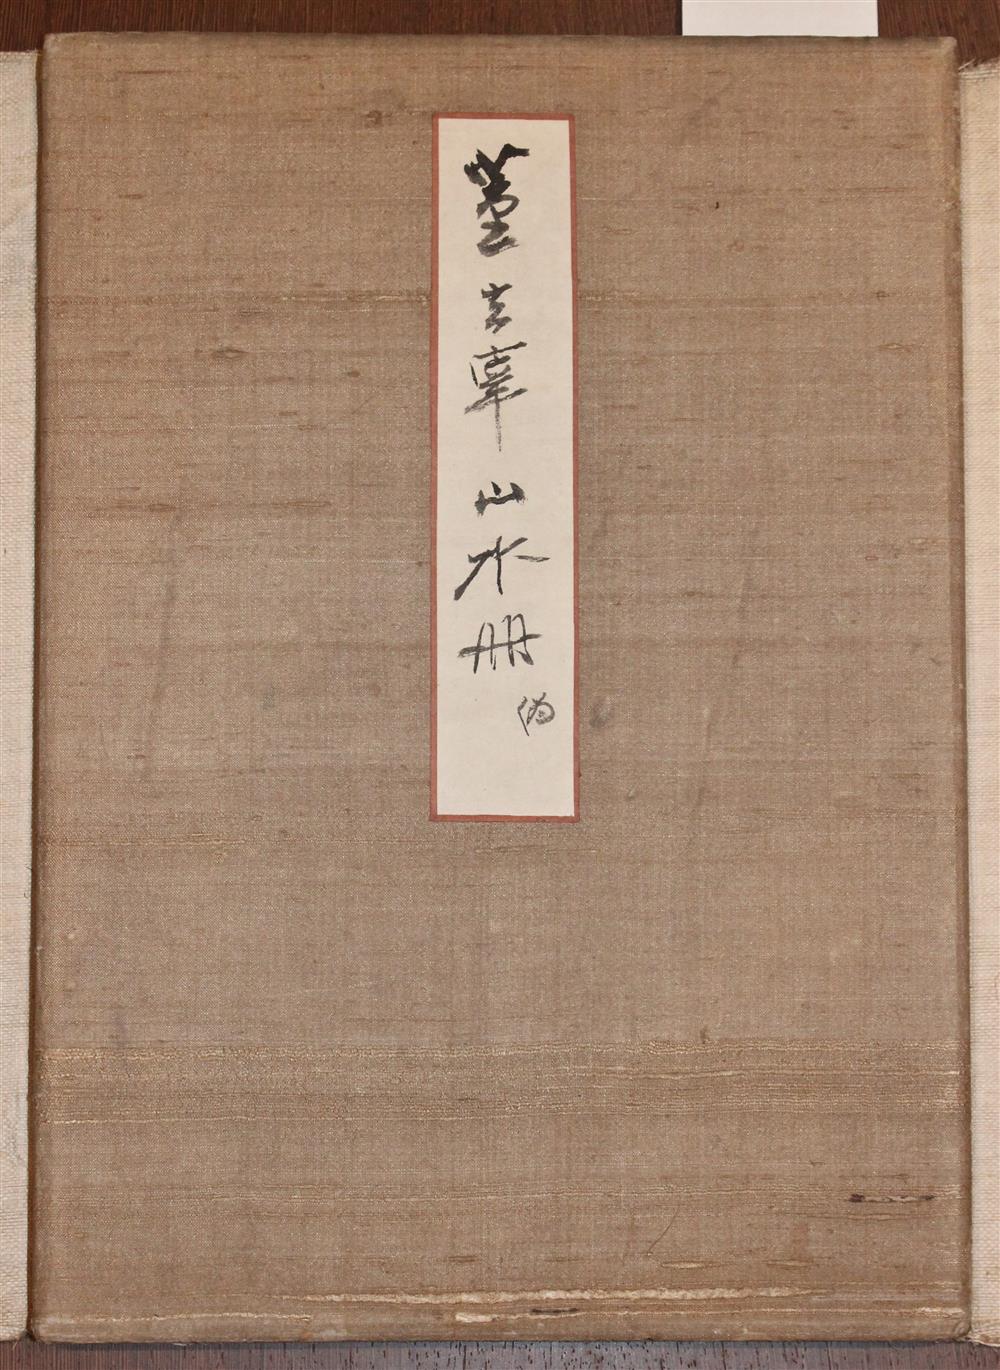 董玄宰山水冊 偽